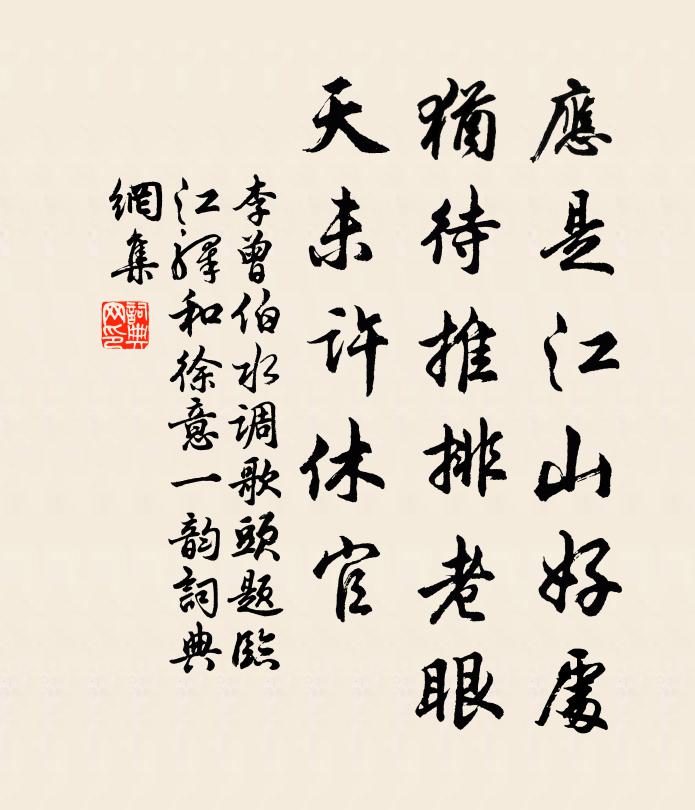 應是江山好處
猶待推排老眼
天未許休官
李曾伯水调歌頭题臨
江驛和徐意一韵詞典
網集
詞典网印